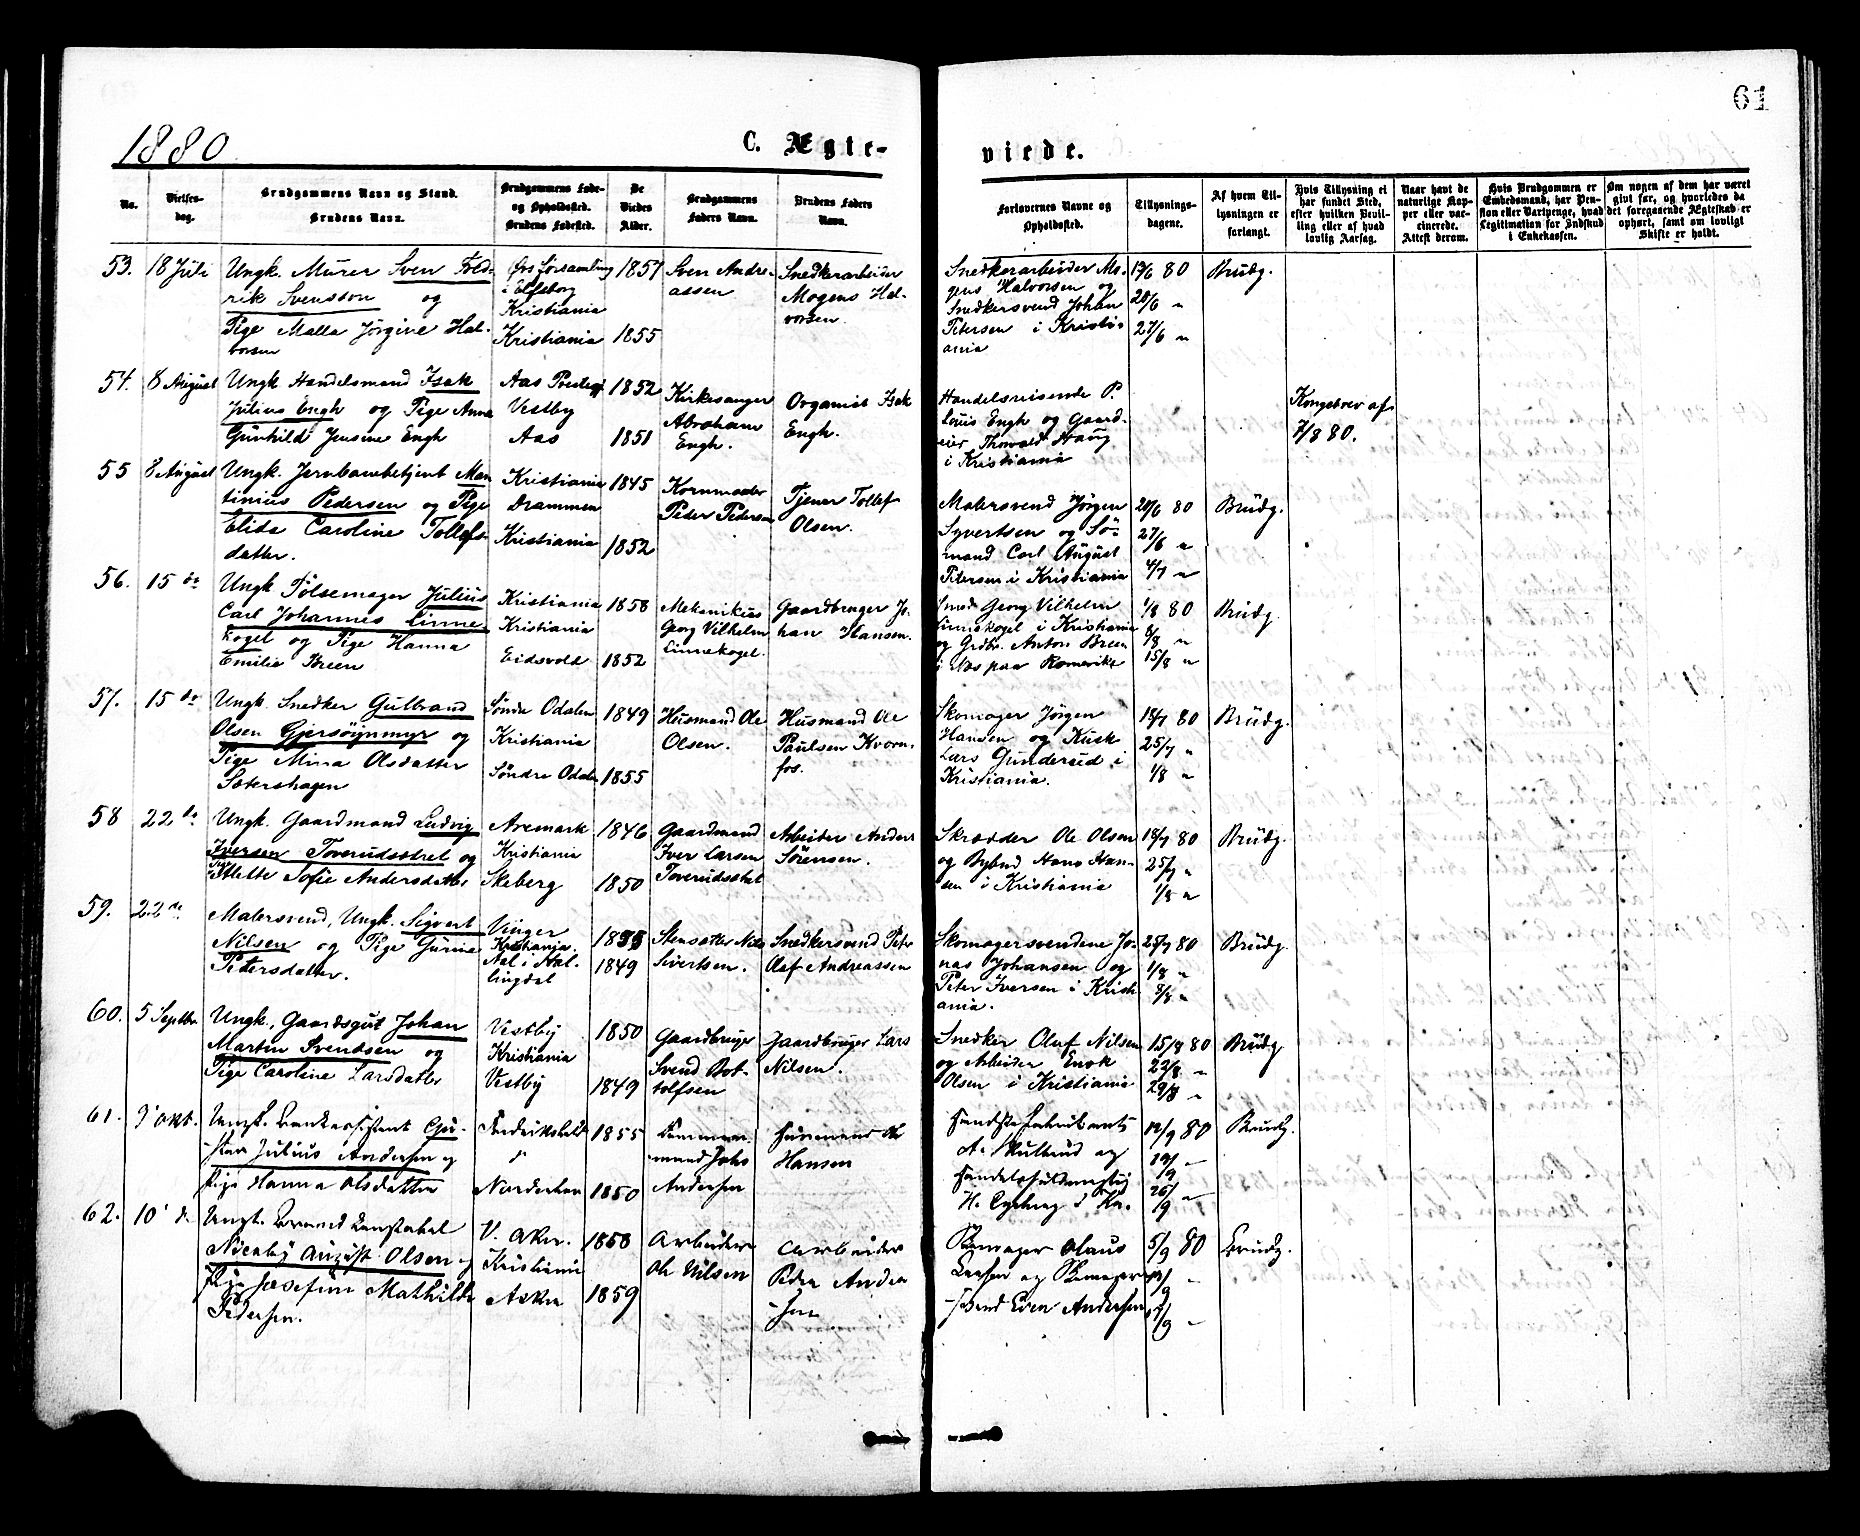 61
1880
C. Ægte-
viede.
No.
Vielses-
dag.
Brudgommens Navn og Stand.
Brudens Navn.
Brudgommens Føde-
og Opholdsted.
Brudens Fødested.
De
Viedes
Alder.
Brudgommens
Faders Navn.
Brudens Faders
Navn.
Forlovernes Navne og
Opholdsted.
Tillysnings-
dagene.
Af hvem Til-
lysningen er
forlangt.
Hvis Tillysning ei
har fundet Sted,
efter hvilken Bevil-
ling eller af hvad
lovlig Aarsag.
Naar havt de
naturlige Kop-
per eller vac-
cinerede.
Attest derom.
Hvis Brudgommen er
Embedsmand, har Pen-
sion eller Vartpenge, hvad
Legitimation for Indskud
i Enkekassen.
Om nogen af dem har været
gift før, og hvorledes da
det foregaaende Ægteskab er
ophørt, samt om lovligt
Skifte er holdt.
53. 18 Juli
Ungk. Murer Sven
rik Svensson og
Pige Malla Jørgine Hal-
vorsen
Ørs forsamling
i Elfsborg
Kristiania
Kristiania
1857
1855
Sven Andre-
assen
Snedkerarbeider
Mogens Hal-
vorsen.
Snedkerarbeider Mo-
gens Halvorsen og
Snedkersvend Johan
Petersen i Kristi-
ania
13/6 80
20/6 "
27/6 "
Brudg.
54. 8 August
Ungk. Handelsmand Isak
Julius Engh og Pige Anna
Gunhild Jensine Engh
Aas Prestegj
Vestby
Aas
1852
1851
Kirkesanger
Abraham
Engh.
Organist Isak
Engh.
Handelsreisende P.
Louis Engh og Gaard-
eier Thorvald Haug
i Kristiania
Kongebrev af
7/8 80.
55 8 August
Ungk. Jernbanebetjent Mar
tinius Pedersen og Pige
Elida Caroline Tollefs
datter.
Kristiania
Drammen
Kristiania
1845
1852
Kornmaaler
Peder Pedersen
Tjener Tollef
Olsen.
Malersvend Jørgen
Syvertsen og Sø-
mand Carl August
Petersen i Kristiania
20/6 80
27/6 "
4/7 "
Brudg.
56. 15 do
Ungk Pølsemager Julius
Carl Johannes Linne
kogel og Pige Hanna
Emilie Breen
Kristiania
Kristiania
Eidsvold
1858
1852
Mekanikus
Georg Vilhelm
Linnekogel.
Gaardbruger Jo-
han Hansen.
Smed Georg Vilhelm
Linnekogel i Kristiania
og Grdbr. Anton Breen
i Næs paa Romerike
1/8 80
8/8 "
15/8 "
Brudg.
57. 15 do
Ungk. Snedker Gulbrand
Olsen Gjersøynmyr og
Pige Mina Olsdatter
Sætershagen
Søndre Odalen
Kristiania
Søndre Odalen
1849
1855
Husmand Ole
Olsen.
Husmand Ole
Paulsen Kvorn-
fos.
Skomager Jørgen
Hansen og Kusk
Lars Gundersen i
Kristiania.
18/7 80
25/7 "
1/8 "
Brudg.
58 22 do
Ungk. Gaardmand Ludvig
Iversen Toverudsætret og
Pige Mette Sofie Andersdatter
Aremark
Kristiania
Skeberg
1846
1850
Gaardmand
Iver Larsen
Toverudsætret
Arbeider Anders
Sørensen.
Skrædder Ole Olsen
og Bybud Hans Han-
sen i Kristiania
18/7 80
25/7 "
1/8 "
Brudg.
59. 22 do
Malersvend, Ungk. Sigvert
Nilsen og Pige Gurine
Petersdatter.
Vinger
Kristiania.
Aal i Hal-
lingdal
1855
1849
Stensætter Nils
Sivertsen.
Snedkersvend Peter
Olaf Andreassen
Skomagersvendene Jo-
nas Johansen og
Peter Iversen i Krist-
ania.
25/7 80
1/8 "
8/8 "
Brudg.
60. 5 Septbr
Ungk., Gaardsgut Johan
Martin Svendsen og
Pige Caroline Larsdatter
Vestby
Kristiania
Vestby
1850
1849
Gaardbruger
Svend Bot-
tolfsen
Gaardbruger Lars
Nilsen.
Snedker Oluf Nilsen
og Arbeider Enok
Olsen i Kristiania
15/8 80
22/8 "
29/8 "
Brudg
61. 3' Okt.
Ungk. Bankassistent Gu-
stav Julius Andersen og
Pige Hanna Olsdatter
Fredrikshald
"
Norderhov
1855
1850
Tømmer-
mand Johs
Andersen
Husmand Ole
Hansen
A. Skullerud og
12/9 80
19/9 "
26/9 "
Brudg.
62. 10' do
Ungk. Brandkonstabel
Nicolay August Olsen og
Pige Josefine Mathilde
Pedersen.
V. Aker.
Kristiania
Asker
1858
1859
Arbeider
Ole Nilsen
Arbeider
Peder Ander
-sen
Skomager Olaus
Larsen og Skomager
-svend Even Andersen
5/9 80
12/9 "
19/9 "
Brudg.